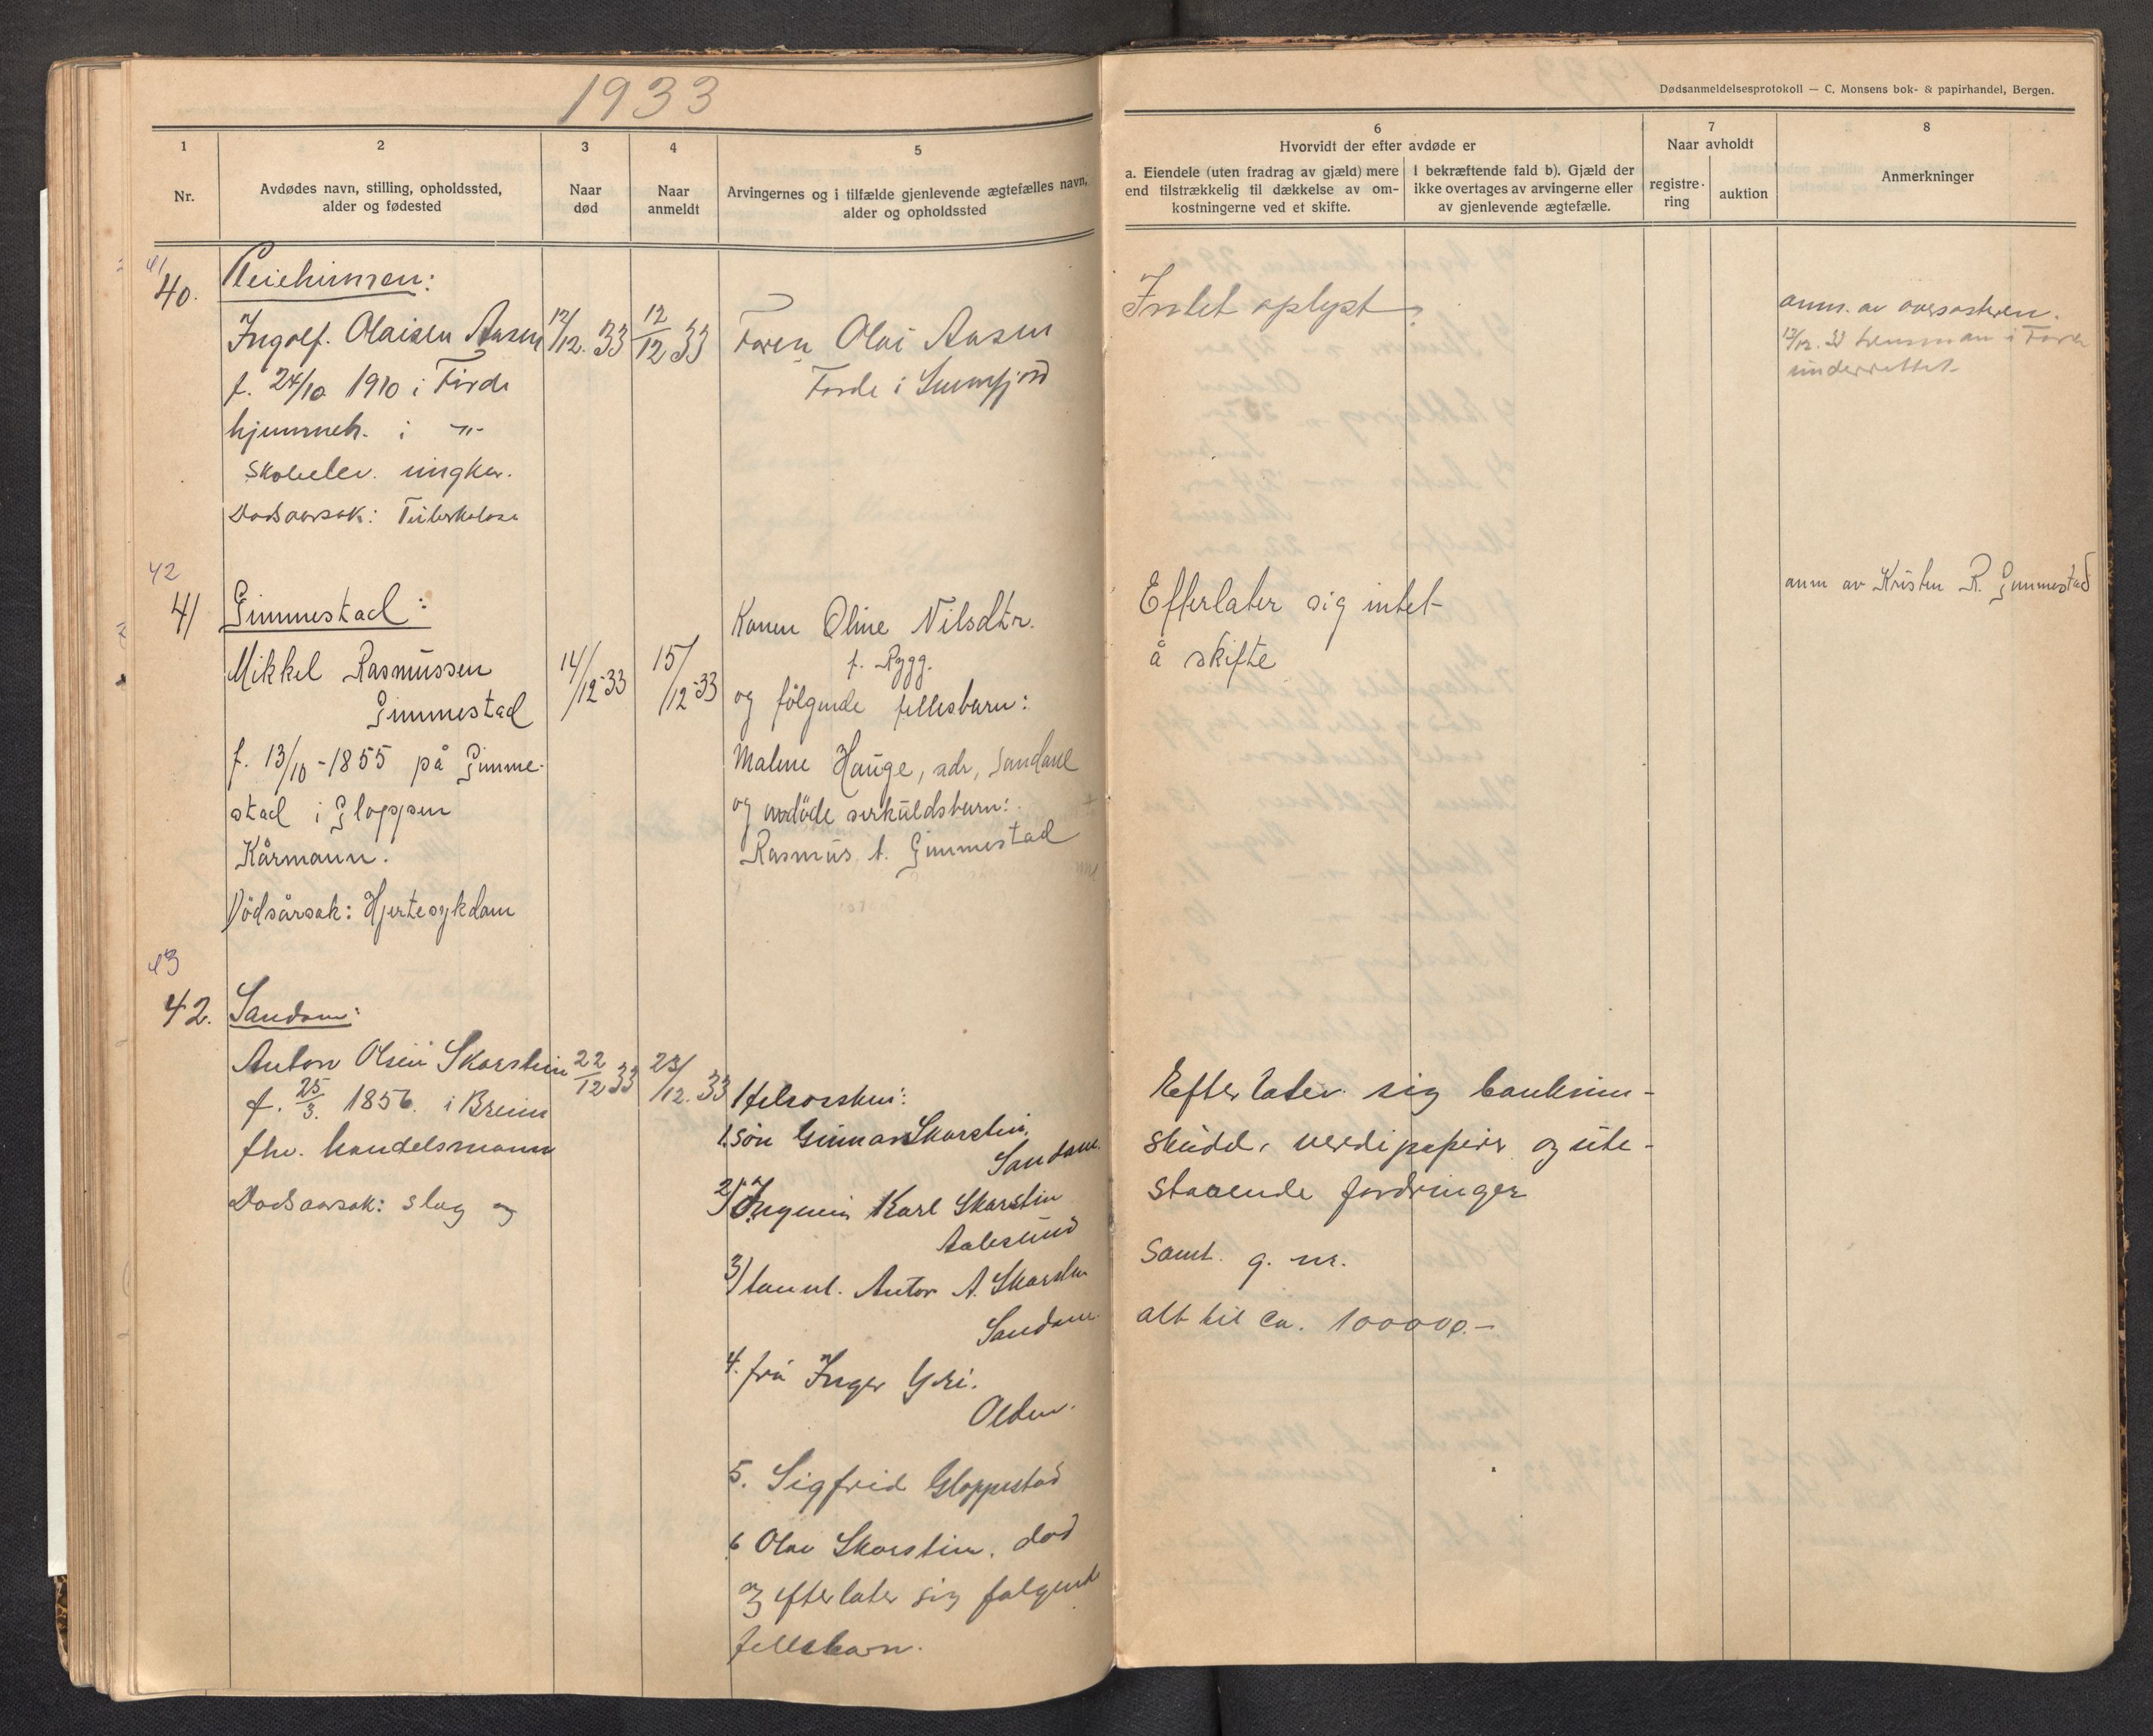 1933
Dødsanmeldelsesprotokoll — C. Monsens bok- & papirhandel, Bergen.
1
Nr.
2
Avdødes navn, stilling, opholdssted,
alder og fødested
3
Naar
død
4
Naar
anmeldt
5
Arvingernes og i tilfælde gjenlevende ægtefælles navn,
alder og opholdssted
6
Hvorvidt der efter avdøde er
a. Eiendele (uten fradrag av gjæld) mere
end tilstrækkelig til dækkelse av om-
kostningerne ved et skifte.
I bekræftende fald b). Gjæld der
ikke overtages av arvingerne eller
av gjenlevende ægtefælle.
7
Naar avholdt
registre-
ring
auktion
8
Anmerkninger
41
40.
Pleiehimen:
Ingolf. Olaisen Aasen
f. 24/10 1910 i Förde
hjemmeh. i -"-
Skoleelev. ungkar.
Dødsaarsak: Tuberkolose
12/12. 33
12/12 33
Faren Olai Aasen
Førde i Sunnfjord
Intet oplyst
anm. av oversøsteren.
12/12. 33 Lensman i Førde
underrettet
42
41
Gimmestad:
Mikkel Rasmussen
Gimmestad
f. 13/10 - 1855 på Gimme-
stad i Gloppen
Kårmann.
Dödsårsak: Hjertesykdom
14/12-33
15/12-33
Konen Oline Nilsdtr.
f. Rygg.
og fölgende fellesbarn:
Malene Hauge, adr, Sandane
og avdöde serkuldsbarn:
Rasmus Gimmestad
Efterlater sig intet
å skifte
anm av Kristen R. Gimmestad
43
42.
Sandane:
Anton Olsen Skarstein
f. 25/3. 1856 i Breim
fhv. handelsmann
Dødsaarsak: slag og
22/12 33
23/12. 33
1. Søn Gunnar Skarstein,
Sandane.
2) Ingeniør Karl Skarstein
Aalesund
3) tannl. Anton A. Skarstein
Sandane.
4. fru Inger Yri.
Olden.
5. Sigfrid Gloppestad
6 Olav Skarstein, død
og efterlater sig følgende
fellesbarn.
Efterlater sig bankinn-
skudd, verdipapirer og ute-
staaende fordringer
samt. g. nr.
alt til ca. 100000.-